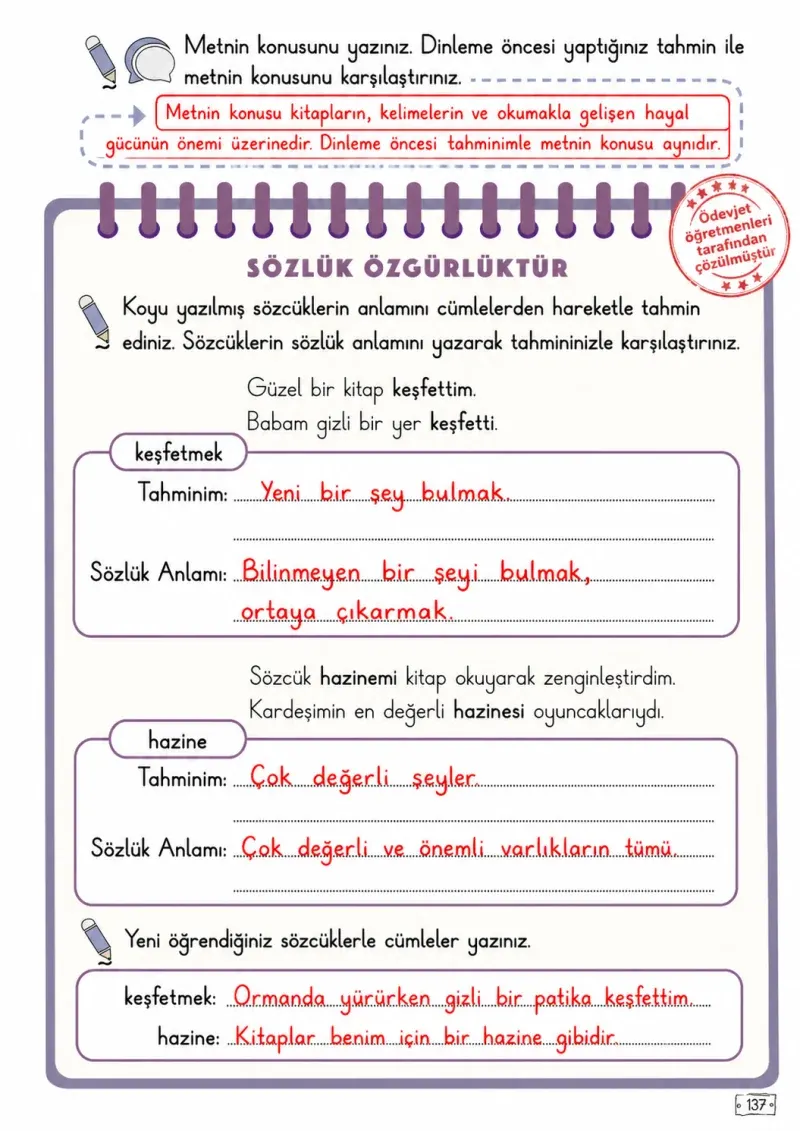 Metnin konusunu yazınız. Dinleme öncesi yaptığınız tahmin ile
metnin konusunu karşılaştırınız.
Metnin konusu kitapların, kelimelerin ve okumakla gelişen hayal
gücünün önemi üzerinedir. Dinleme öncesi tahminimle metnin konusu aynıdır.
Ödevjet
öğretmenleri
tarafından
çözülmüştür
SÖZLÜK ÖZGÜRLÜKTÜR
Koyu yazılmış sözcüklerin anlamını cümlelerden hareketle tahmin
ediniz. Sözcüklerin sözlük anlamını yazarak tahmininizle karşılaştırınız.
Güzel bir kitap keşfettim.
Babam gizli bir yer keşfetti.
keşfetmek
Tahminim: Yeni bir şey bulmak.
Sözlük Anlamı: Bilinmeyen bir şeyi bulmak,
ortaya çıkarmak.
Sözcük hazinemi kitap okuyarak zenginleştirdim.
Kardeşimin en değerli hazinesi oyuncaklarıydı.
hazine
Tahminim: Çok değerli şeyler.
Sözlük Anlamı: Çok değerli ve önemli varlıkların tümü.
Yeni öğrendiğiniz sözcüklerle cümleler yazınız.
keşfetmek: Ormanda yürürken gizli bir patika keşfettim.
hazine: Kitaplar benim için bir hazine gibidir.
137